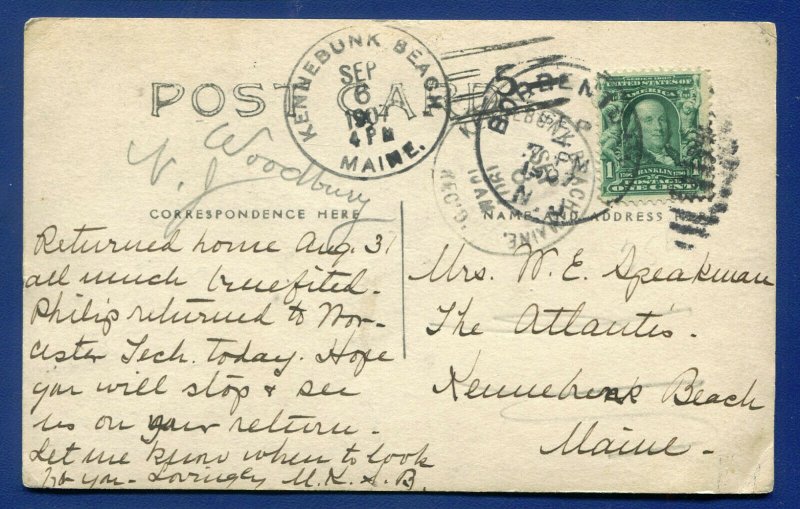 POST CARD
KENNEBUNK BEACH
SEP
6
1907
4 PM
MAINE.
REC'D.
SERIES 1902
UNITED STATES OF
AMERICA
FRANKLIN
POSTAGE
1 ONE CENT
Woodbury
N. J.
CORRESPONDENCE HERE
NAME AND ADDRESS
Returned home Aug. 31
all much benefited.
Philip returned to Wor-
cister Tech. today. Hope
you will stop & see
us on your return.
Let me know when to look
for you- Lovingly M. K. & B.
Mrs. W. E. Speakman
The Atlantis.
Kennebunk Beach
Maine -